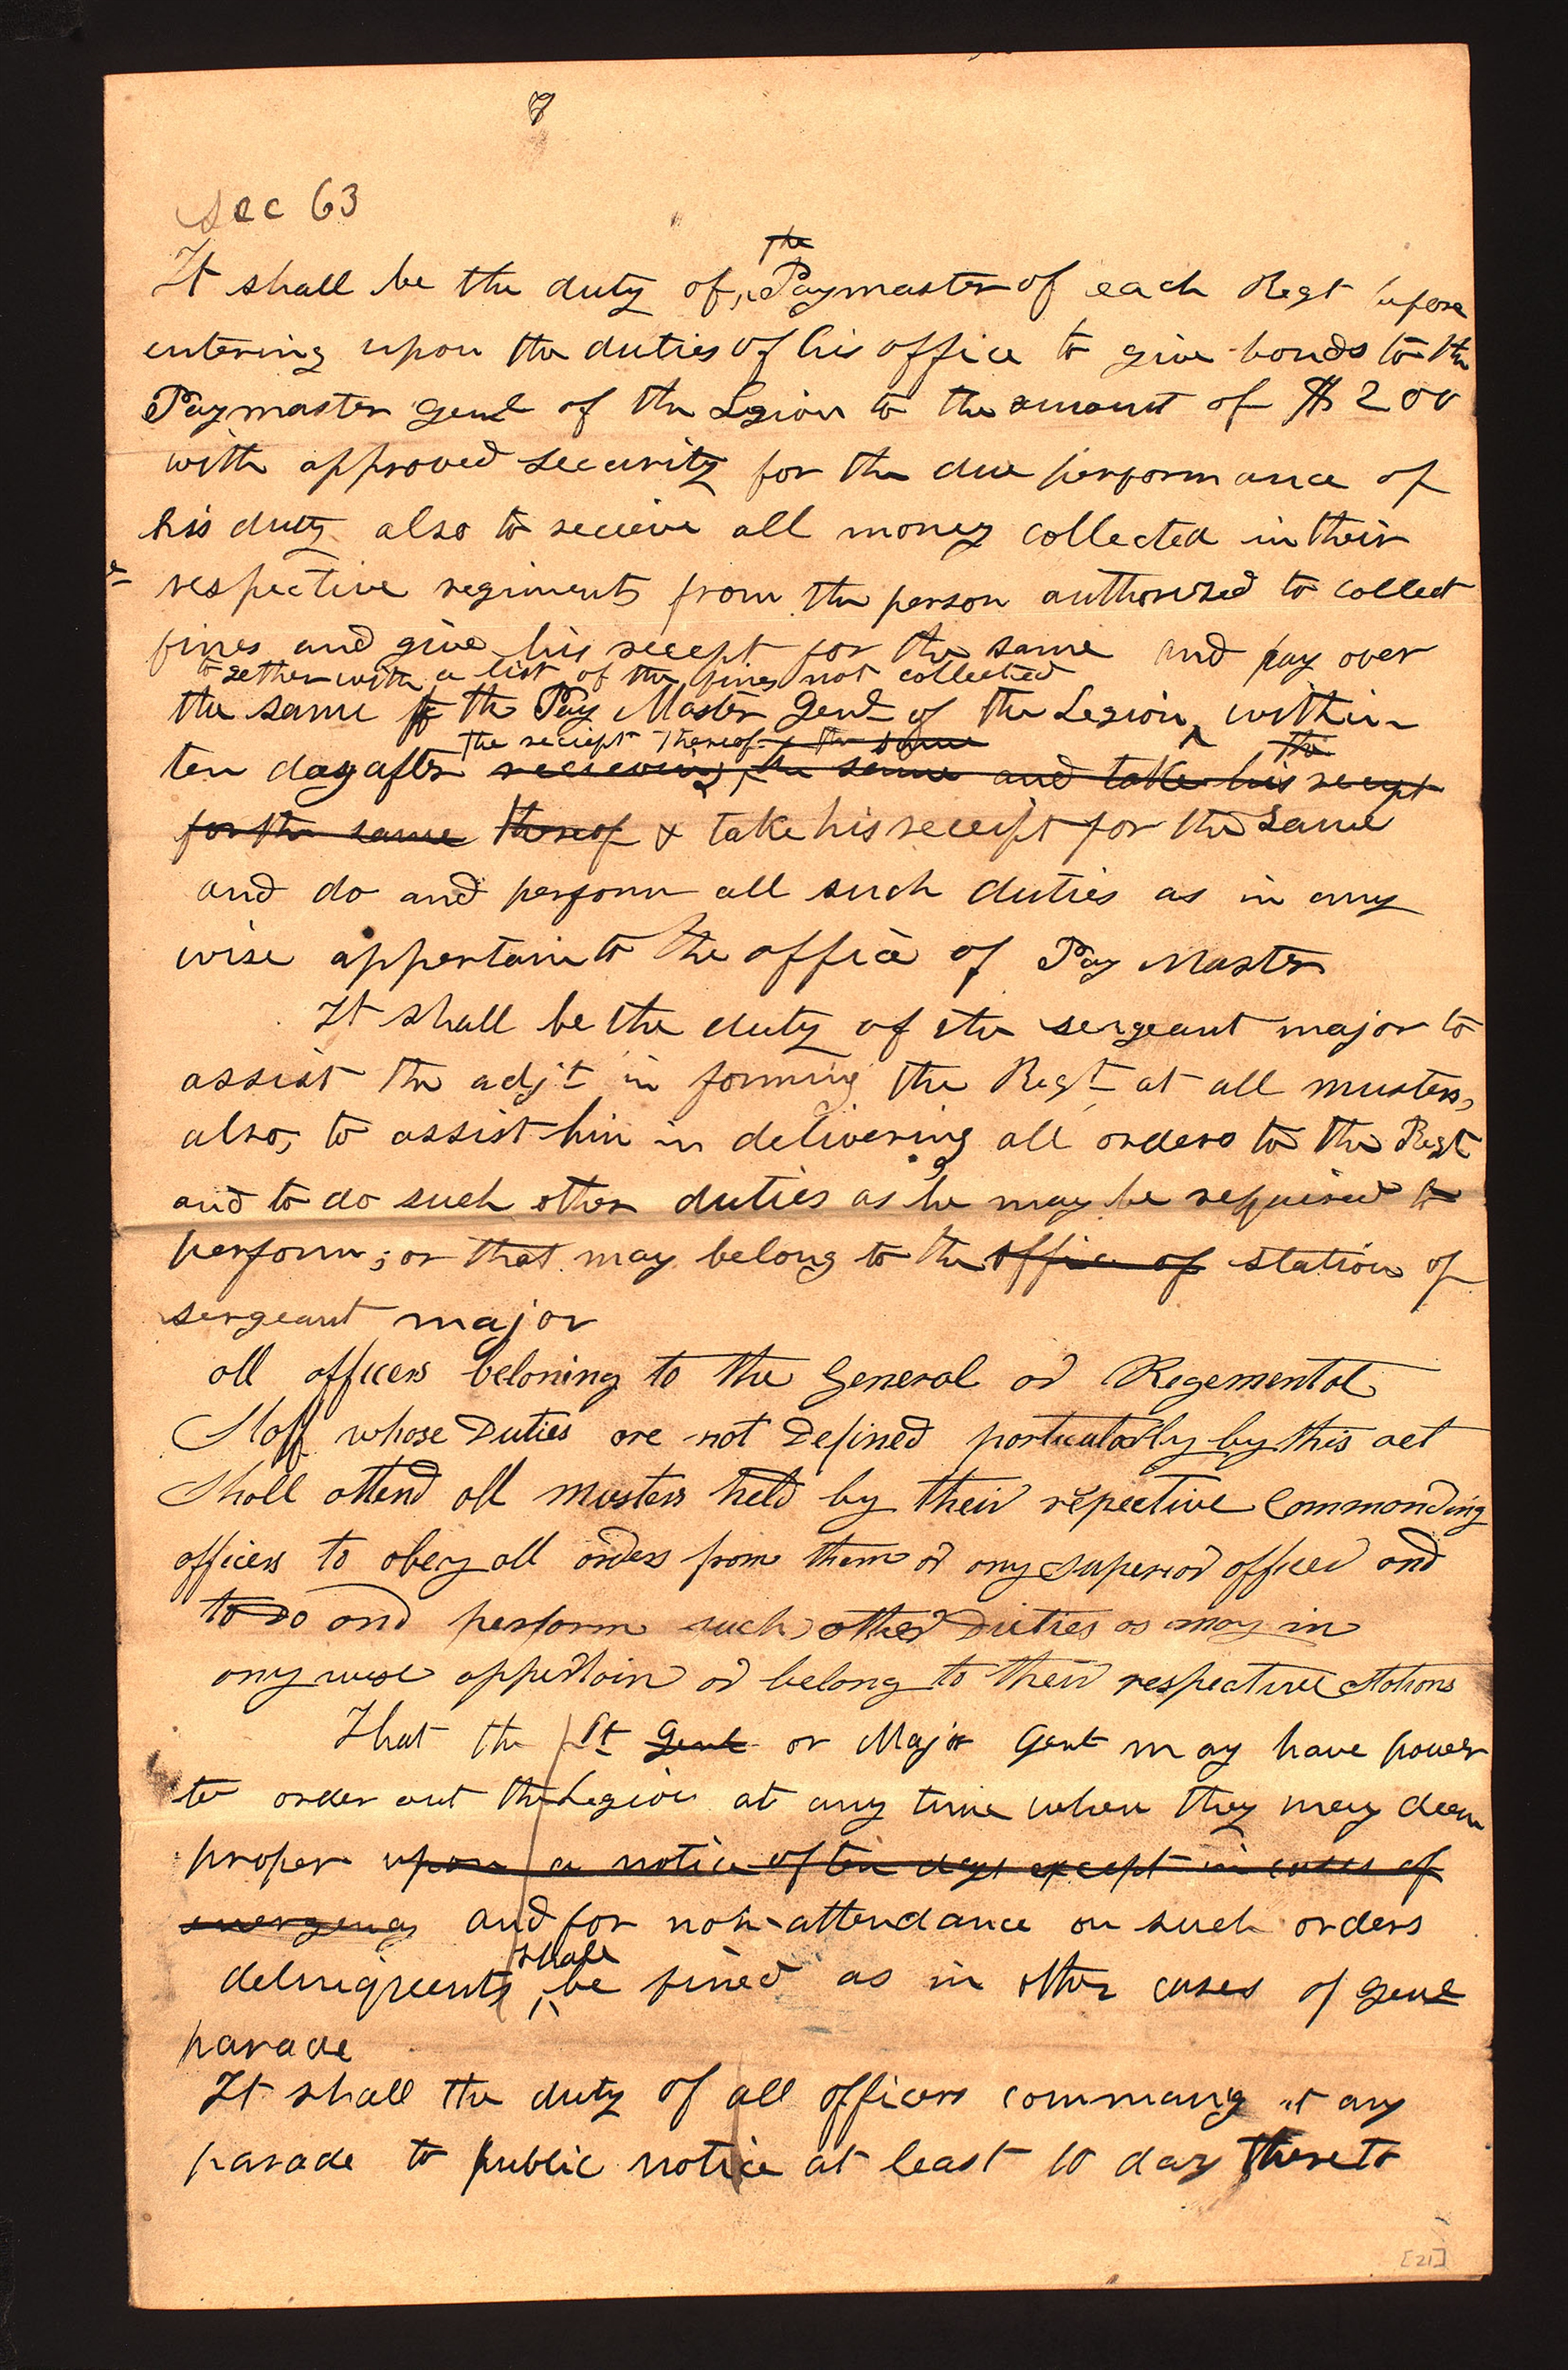 7
Sec 63
the
It shall be the duty of Paymaster of each Regt before
entering upon the duties of his office to give bonds to the
Paymaster Genl of the Legion to the amount of $200
with approved security for the due performance of
his duty also to recieve all money collected in their
respective regiments from the person authorised to collect
fines and give his receept for the same and pay over
together with a list of the fines not collected
the same to the Pay Master Genl of the Legion within
the reciept thereof & the same the
ten day after recieving the same and take his recept
for the same thereof & take his receipt for the same
and do and perform all such duties as in any
wise appertain to the office of Pay Master
It shall be the duty of the sergeant major to
assist the adjt in forming the Regt at all musters,
also, to assist him in delivering all orders to the Regt
and to do such other duties as he may be required to
perform; or that may belong to the office of station of
sergeant major
all officers beloning to the General or Regemental
Staff whose Duties are not Defined particularly by this act
Shall attend all musters held by their repective Commanding
officers to obey all orders from them or any superior officer and
to do and perform such other Duties as may in
any wise appertain or belong to their respective Stations
That the Lt Genl or Major Genl may have power
to order out the Legion at any time when they may deem
proper upon a notice of ten days except in cases of
emergency and for non-attendance on such orders
shall
delinqueents be fined as in other cases of genl
parade
It shall the duty of all officers commang at any
parade to public notice at least 10 day thereto
[21]